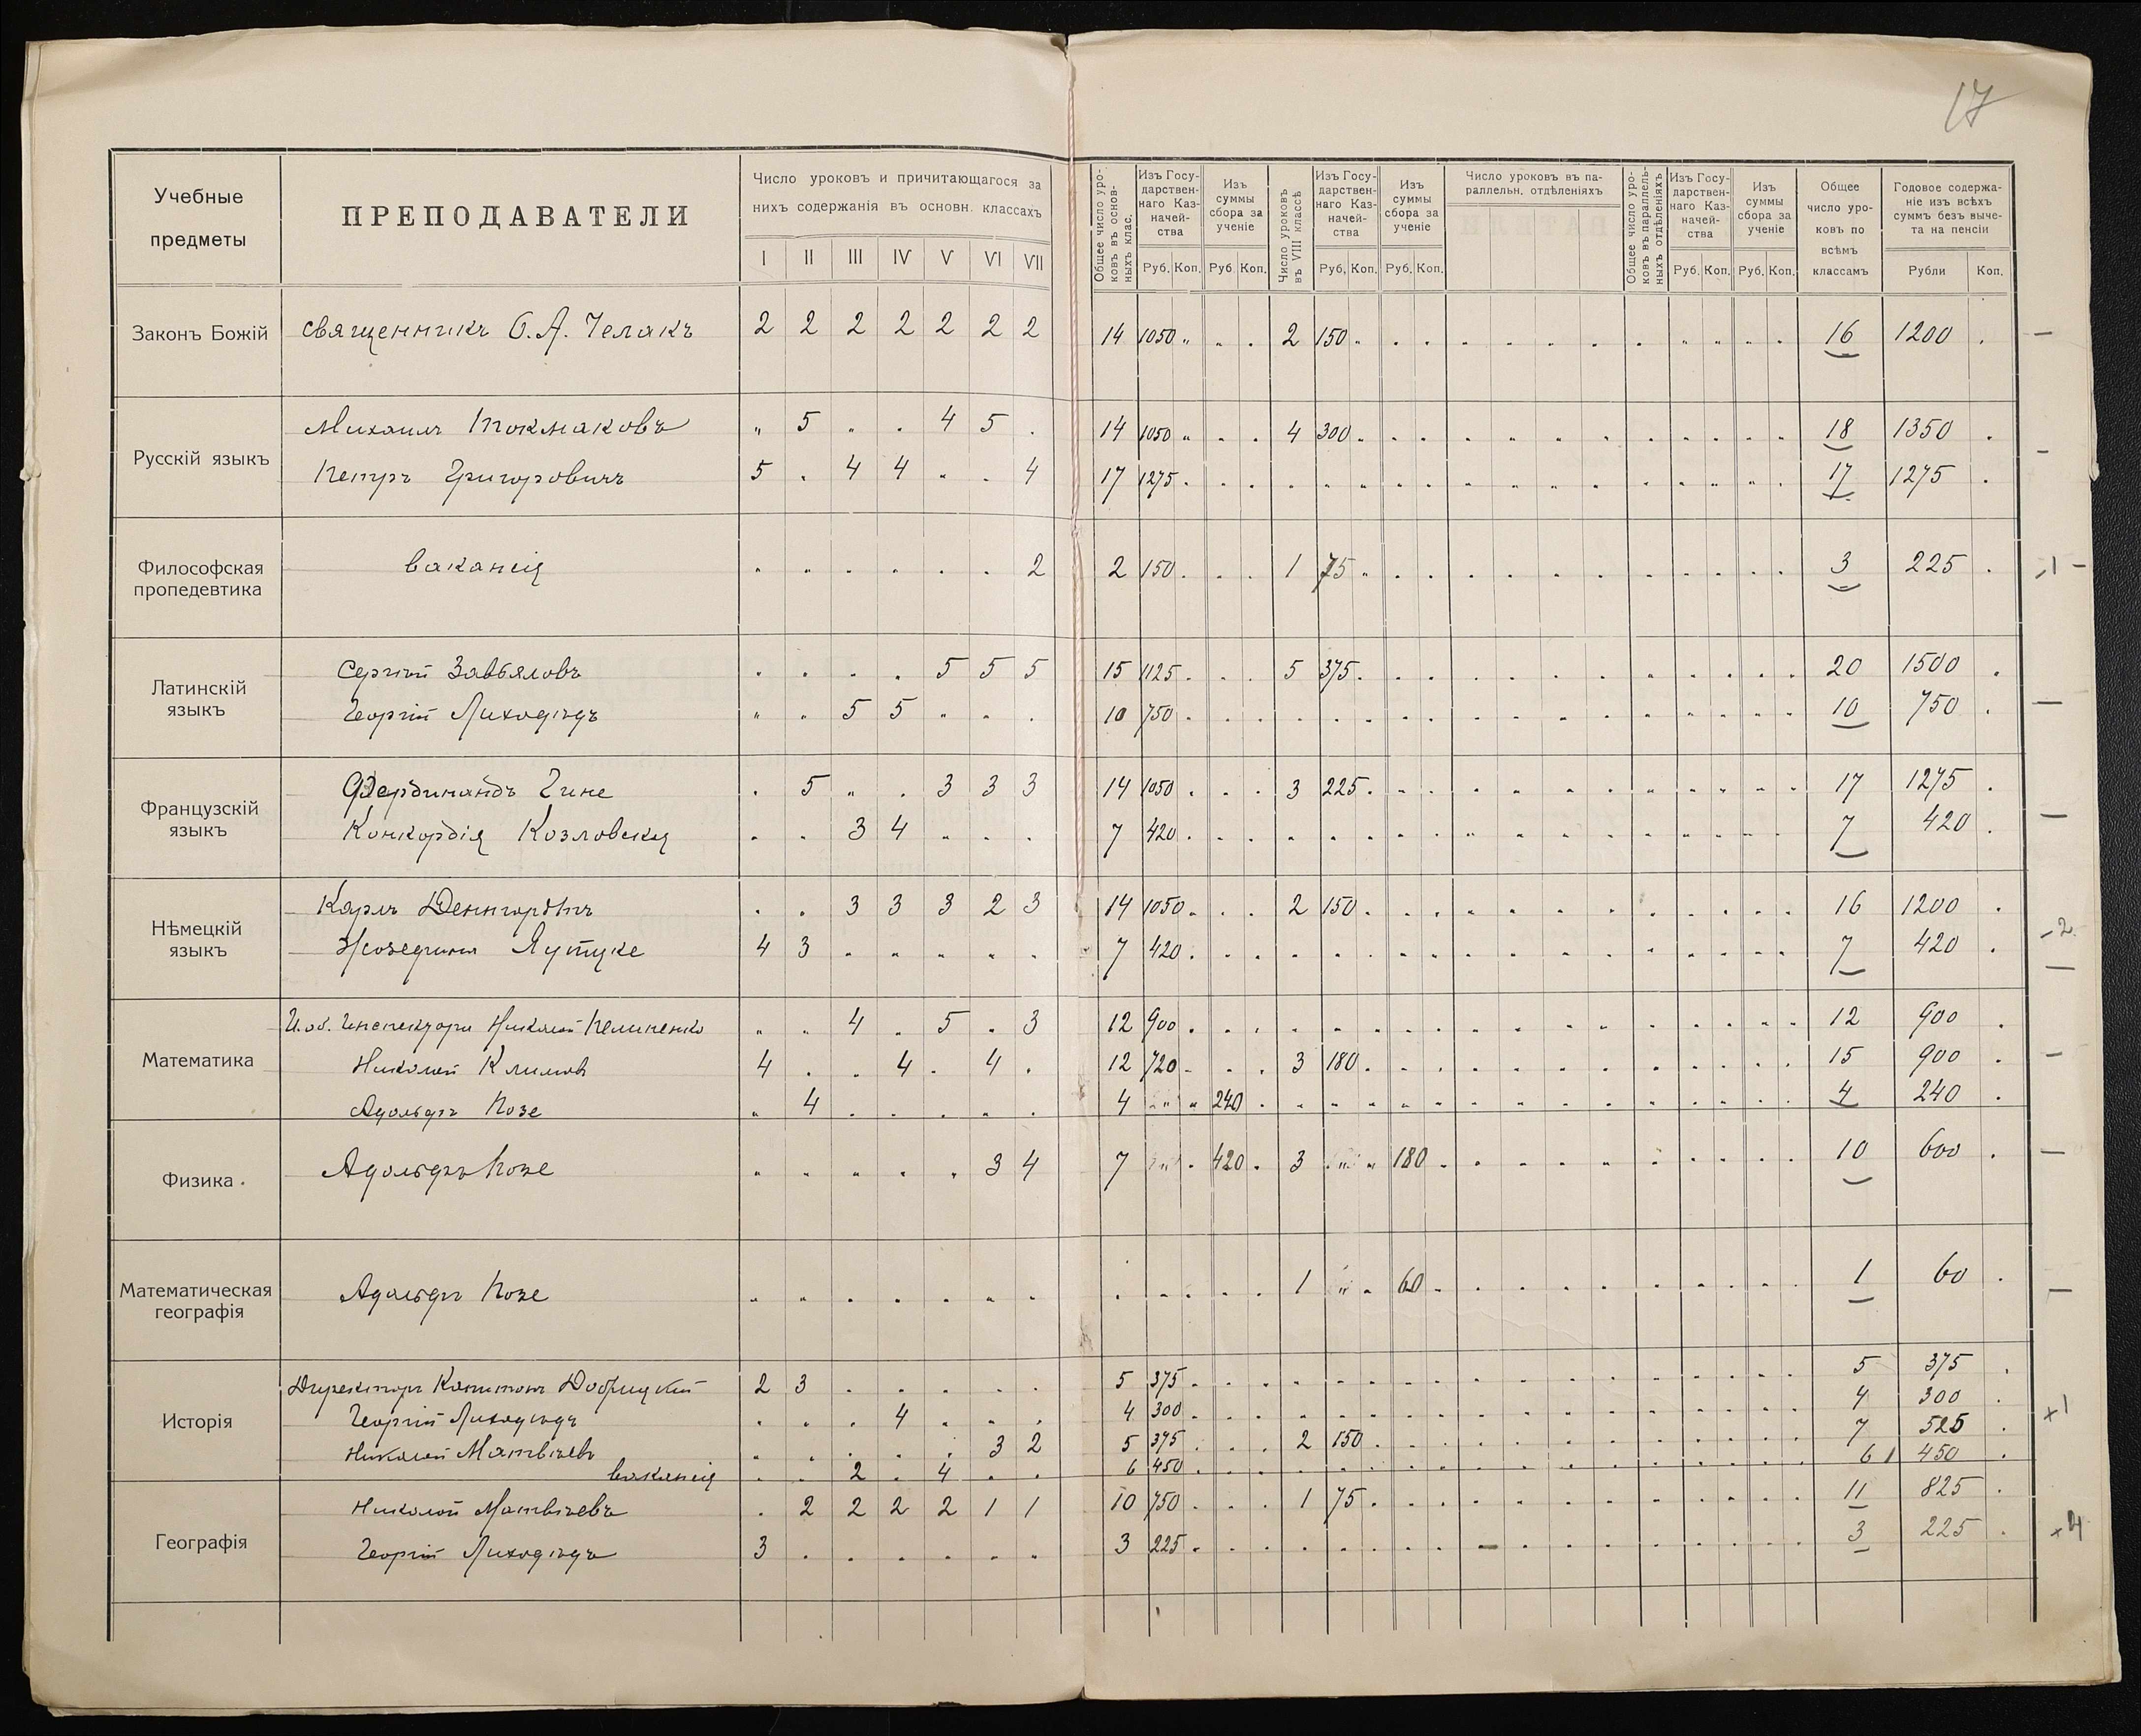 17
Учебные предметы
ПРЕПОДАВАТЕЛИ
Число уроковъ и причитающагося за нихъ содержанія въ основн. классахъ
I II III IV V VI VII
Общее число уроковъ въ основныхъ клас.
Изъ Государственнаго Казначейства
Руб. Коп.
Изъ суммы сбора за ученіе
Руб. Коп.
Число уроковъ въ VIII классѣ
Изъ Государственнаго Казначейства
Руб. Коп.
Изъ суммы сбора за ученіе
Руб. Коп.
Число уроковъ въ параллельн. отдѣленіяхъ
Общее число уроковъ въ параллельныхъ отдѣленіяхъ
Изъ Государственнаго Казначейства
Руб. Коп.
Изъ суммы сбора за ученіе
Руб. Коп.
Общее число уроковъ по всѣмъ классамъ
Годовое содержаніе изъ всѣхъ суммъ безъ вычета на пенсіи
Рубли Коп.
Законъ Божій священникъ О. А. Челакъ 2 2 2 2 2 2 2 14 1050 2 150 16 1200 —
Русскій языкъ
Михаилъ Токмаковъ 5 4 5 14 1050 4 300 18 1350
Петръ Григоровичъ 5 4 4 4 17 1275 17 1275
Философская пропедевтика вакансія 2 2 150 1 75 3 225
Латинскій языкъ
Сергѣй Завьяловъ 5 5 5 15 1125 5 375 20 1500
Георгій Лиходѣдъ 5 5 10 750 10 750 —
Французскій языкъ
Фердинандъ Гине 5 3 3 3 14 1050 3 225 17 1275
Конкордія Козловская 3 4 7 420 7 420 —
Нѣмецкій языкъ
Карлъ 3 3 3 2 3 14 1050 2 150 16 1200 -2
4 3 7 420 7 420 —
Математика
И. об. Инспектора Николай Пелипенко 4 5 3 12 900 12 900
Николай Климовъ 4 4 4 12 720 3 180 15 900 —
Адольфъ Позе 4 4 240 4 240
Физика Адольфъ Позе 3 4 7 420 3 180 10 600 —
Математическая географія Адольфъ Позе 1 60 1 60 —
Исторія
Директоръ Капитонъ Добрицкій 2 3 5 375 5 375
Георгій Лиходѣдъ 4 4 300 4 300 +1
Николай Матвѣевъ 3 2 5 375 2 150 7 525
вакансія 2 4 6 450 6 450
Географія
Николай Матвѣевъ 2 2 2 2 1 1 10 750 1 75 11 825
Георгій Лиходѣдъ 3 3 225 3 225 +4